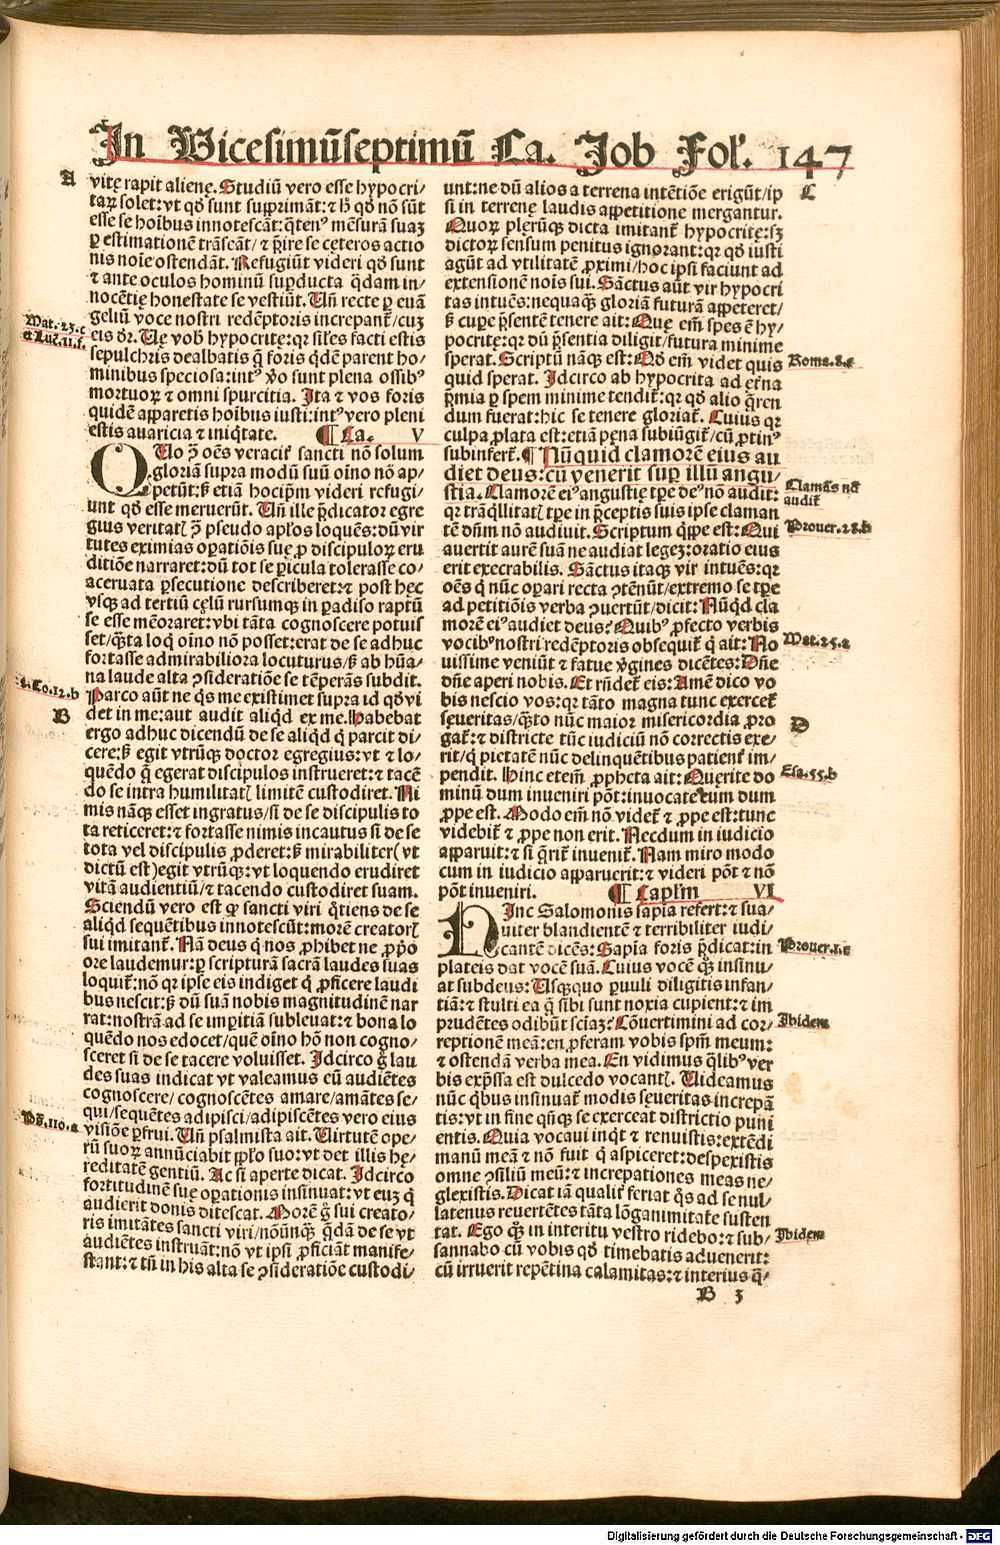 In Vicesimũseptimũ Ca. Job Fol'. 147
A
vitę rapit alienę. Studiũ vero esse hypocri/
taꝝ solet: vt qđ sunt supprimãt: ⁊ hͦ qđ nõ sũt
esse se hoĩbus innotescãt: q̃ten⁹ mẽsurã suaꝫ
ꝑ estimationẽ trãseãt/ ⁊ p̃ire se ceteros actio
nis noĩe ostendãt. Refugiũt videri qđ sunt
⁊ ante oculos hominũ suꝑducta q̃dam in/
nocẽtię honestate se vestiũt. Uñ recte ꝑ euã
geliũ voce nostri redẽptoris increpant᷑/ cuꝫ
eis dr̃. Uę vob̃ hypocritę: qꝛ sil̃es facti estis
sepulchris dealbatis q̃ foris q̃dẽ parent ho/
minibus speciosa: int⁹ ṽo sunt plena ossib⁹
mortuoꝝ ⁊ omni spurcitia. Ita ⁊ vos foris
quidẽ apparetis hoĩbus iusti: int⁹ vero pleni
estis auaricia ⁊ iniq̃tate. ¶ Ca. V
QUo ꝯ̃ oẽs veracit᷑ sancti nõ solum
gloriã supra modũ suũ oĩno nõ ap/
petũt: ß etiã hocip̃m videri refugi/
unt qđ esse meruerũt. Uñ ille p̃dicator egre
gius veritat̃ ꝯ̃ pseudo apl̃os loquẽs: dũ vir
tutes eximias oꝑatiõis suę ꝓ discipuloꝝ eru
ditiõe narraret: dũ tot se ꝑicula tolerasse co/
aceruata ꝑsecutione describeret: ⁊ post hęc
vsqꝫ ad tertiũ cęlũ rursumqꝫ in ꝑadiso raptũ
se esse mẽoraret: vbi tãta cognoscere potuis
set/ q̃ta loq̃ oĩno nõ posset: erat de se adhuc
fortasse admirabiliora locuturus/ ß ab hũa/
na laude alta ꝯsideratiõe se tẽperãs subdit.
Parco aũt ne q̃s me existimet supra id qđ vi
det in me: aut audit aliq̃d ex me. Habebat
ergo adhuc dicendũ de se aliq̃d q̃ parcit di/
cere: ß egit vtrũqꝫ doctor egregius: vt ⁊ lo/
quẽdo q̃ egerat discipulos instrueret: ⁊ tacẽ
do se intra humilitat̃ limitẽ custodiret. Ni
mis nãqꝫ esset ingratus/ si de se discipulis to
ta reticeret: ⁊ fortasse nimis incautus si de se
tota vel discipulis ꝓderet: ß mirabiliter (vt
dictũ est) egit vtrũqꝫ: vt loquendo erudiret
vitã audientiũ/ ⁊ tacendo custodiret suam.
Sciendũ vero est ꝙ sancti viri q̃tiens de se
aliq̃d sequẽtibus innotescũt: morẽ creatoris
sui imitant᷑. Nã deus q̃ nos ꝓhibet ne ꝓp̃o
ore laudemur: ꝑ scripturã sacrã laudes suas
loquit᷑: nõ qꝛ ipse eis indiget q̃ ꝓficere laudi
bus nescit: ß dũ suã nobis magnitudinẽ nar
rat: nostrã ad se imꝑitiã subleuat: ⁊ bona lo
quẽdo nos edocet/ quẽ oĩno hõ non cogno/
sceret si de se tacere voluisset. Idcirco g̃ lau
des suas indicat vt valeamus eũ audiẽtes
cognoscere/ cognoscẽtes amare/ amãtes se/
qui/ sequẽtes adipisci/ adipiscẽtes vero eius
visiõe ꝑfrui. Uñ psalmista ait. Uirtutẽ ope/
rũ suoꝝ annũciabit pp̃lo suo: vt det illis hę/
reditatẽ gentiũ. Ac si aperte dicat. Idcirco
fortitudinẽ suę oꝑationis insinuat: vt euꝫ q̃
audierit donis ditescat. Morẽ g̃ sui creato/
ris imitãtes sancti viri/ nõũnqꝫ q̃dã de se vt
audiẽtes instruãt: nõ vt ipsi ꝓficiãt manife/
stant: ⁊ tñ in his alta se ꝯsideratiõe custodi/
Mat. 23. c
et Luc. 11. f.
2. Co. 12. b
B
Ps̃. 110. a
C
unt: ne dũ alios a terrena intẽtiõe erigũt/ ip
si in terrenę laudis appetitione mergantur.
Quoꝝ plerũqꝫ dicta imitant᷑ hypocritę: sꝫ
dictoꝝ sensum penitus ignorant: qꝛ qđ iusti
agũt ad vtilitatẽ ꝓximi/ hoc ipsi faciunt ad
extensionẽ nois sui. Sãctus aũt vir hypocri
tas intuẽs: nequaqꝫ gloriã futurã appeteret/
ß cuꝑe p̃sentẽ tenere ait: Quę em̃ spes ẽ hy/
pocritę: qꝛ dũ p̃sentia diligit/ futura minime
sperat. Scriptũ nãqꝫ est: Qđ em̃ videt quis
quid sperat. Idcirco ab hypocrita ad ęt̃na
p̃mia ꝑ spem minime tendit᷑: qꝛ qđ alio q̃ren
dum fuerat: hic se tenere gloriat᷑. Cuius qꝛ
culpa ꝓlata est: etiã pena subiũgit᷑/ cũ ꝓtin⁹
subinfert᷑. ¶ Nũquid clamorẽ eius au
diet deus: cũ venerit suꝑ illũ angu/
stia. Clamorẽ ei⁹ angustię tꝑe de⁹ nõ audit:
qꝛ trãq̃llitat̃ tꝑe in p̃ceptis suis ipse claman
tẽ dñm nõ audiuit. Scriptum q̃ppe est: Qui
auertit aurẽ suã ne audiat legeꝫ: oratio eius
erit execrabilis. Sãctus itaqꝫ vir intuẽs: qꝛ
oẽs q̃ nũc oꝑari recta ꝯtẽnũt/ extremo se tꝑe
ad petitiõis verba ꝯuertũt/ dicit: Nũq̃d cla
morẽ ei⁹ audiet deus? Quib⁹ ꝓfecto verbis
vocib⁹ nostri redẽptoris obsequit᷑ q̃ ait: No
uissime veniũt ⁊ fatue ṽgines dicẽtes: Dñe
dñe aperi nobis. Et rñdet᷑ eis: Amẽ dico vo
bis nescio vos: qꝛ tãto magna tunc exercet᷑
seueritas/ q̃to nũc maior misericordia ꝓro
gat᷑: ⁊ districte tũc iudiciũ nõ correctis exe/
rit/ q̃ pietatẽ nũc delinquẽtibus patient᷑ im/
pendit. Hinc etem̃ ꝓpheta ait: Quęrite do
minũ dum inueniri põt: inuocate eum dum
ꝓpe est. Modo em̃ nõ videt᷑ ⁊ ꝓpe est: tunc
videbit᷑ ⁊ ꝓpe non erit. Necdum in iudicio
apparuit: ⁊ si q̃rit᷑ inuenit᷑. Nam miro modo
cum in iudicio apparuerit: ⁊ videri põt ⁊ nõ
põt inueniri. ¶ Capl̃m VI
HInc Salomonis sapĩa refert: ⁊ sua/
uiter blandientẽ ⁊ terribiliter iudi/
cantẽ dicẽs: Sapĩa foris p̃dicat: in
plateis dat vocẽ suã. Cuius vocẽ q̃ꝫ insinu/
at subdeus: Usqꝫquo ꝑuuli diligitis infan/
tiã: ⁊ stulti ea q̃ sibi sunt noxia cupient: ⁊ im
prudẽtes odibũt sciaꝫ? Cõuertimini ad cor/
reptionẽ meã: en ꝓferam vobis spm̃ meum:
⁊ ostendã verba mea. En vidimus q̃lib⁹ ver
bis exp̃ssa est dulcedo vocant̃. Uideamus
nũc q̃bus insinuat᷑ modis seueritas increpã
tis: vt in fine qñqꝫ se exerceat districtio puni
entis. Quia vocaui inq̃t ⁊ renuistis: extẽdi
manũ meã ⁊ nõ fuit q̃ aspiceret: despexistis
omne ꝯsiliũ meũ: ⁊ increpationes meas ne/
glexistis. Dicat iã qualit᷑ feriat q̃s ad se nul/
latenus reuertẽtes tãta lõganimitate susten
tat. Ego q̃ꝫ in interitu vestro ridebo: ⁊ sub/
sannabo cũ vobis qđ timebatis aduenerit:
cũ irruerit repẽtina calamitas: ⁊ interius q̃/
Roma. 8. e
Clamãs nõ
audit᷑
Prouer. 28. b
Mat. 25. a
D
Esa. 55. b
Prouer. 1. c
Ibidem
Ibidem
B 3
Digitalisierung gefördert durch die Deutsche Forschungsgemeinschaft - DFG